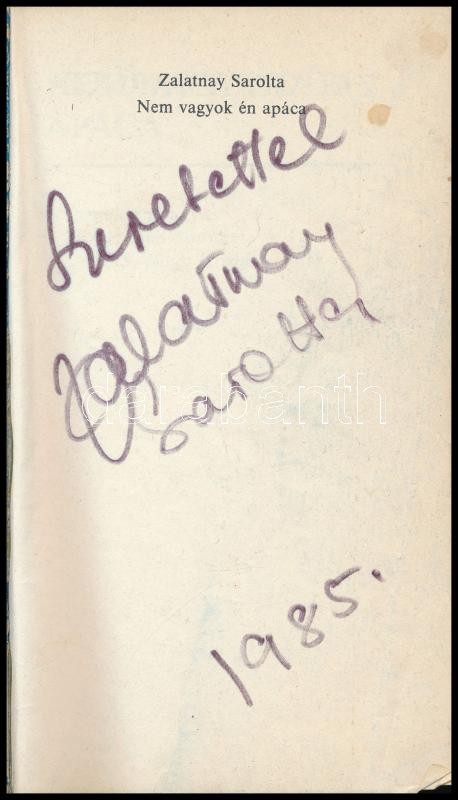 Zalatnay Sarolta
Nem vagyok én apáca
Szeretettel
Zalatnay
Sarolta
darabanth
1985.